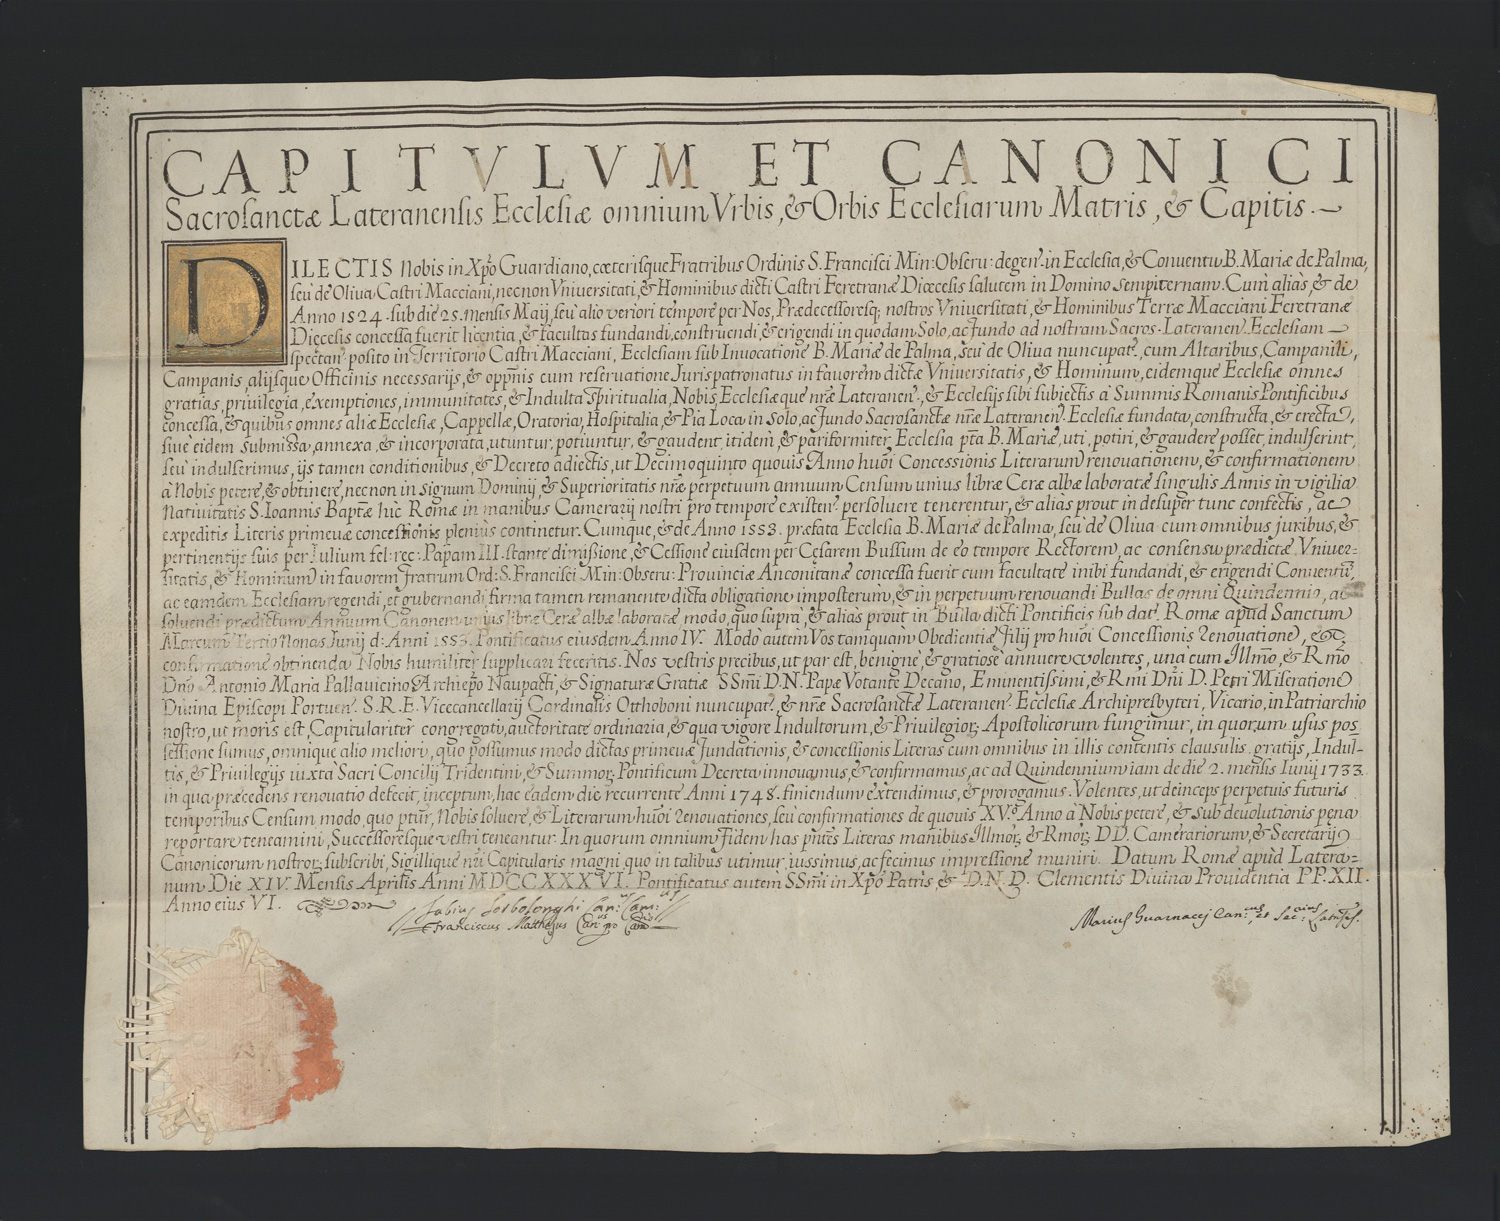 CAPITVLVM ET CANONICI
Sacrosanctæ Lateranensis Ecclesiæ omnium Vrbis, & Orbis Ecclesiarum Matris, & Capitis.
DILECTIS Nobis in Xpo Guardiano, cæterisque Fratribus Ordinis S. Francisci Min: Obseru: degen: in Ecclesia, & Conventu B. Mariæ de Palma,
seù de Oliva Castri Macciani, necnon Vniversitati, & Hominibus dicti Castri Feretranæ Diœcesis salutem in Domino sempiternam. Cum aliàs, & de
Anno 1524. sub die 25. Mensis Maij, seù alio veriori tempore per Nos, Prædecessoresq; nostros Vniversitati, & Hominibus Terræ Macciani Feretranæ
Diecesis concessa fuerit licentia, & facultas fundandi, construendi, & erigendi in quodam Solo, ac fundo ad nostram Sacros. Lateranen. Ecclesiam
spectan. posito in Territorio Castri Macciani, Ecclesiam sub Invocatione B. Mariæ de Palma, seù de Oliva nuncupat. cum Altaribus, Campanili,
Campanis, alijsque Officinis necessarijs, & oppnis cum reservatione Jurispatronatus in favorem dictæ Vniversitatis, & Hominum, eidemque Ecclesiæ omnes
gratias, privilegia, exemptiones, immunitates, & Indulta spiritualia, Nobis, Ecclesiæque nræ Lateranen., & Ecclesijs sibi subiectis à Summis Romanis Pontificibus
concessa, & quibus omnes aliæ Ecclesiæ, Cappellæ, Oratoria, Hospitalia, & Pia Loca in Solo, ac fundo Sacrosanctæ nræ Lateranen. Ecclesiæ fundata, constructa, & erecta,
siuè eidem submissa, annexa, & incorporata, utuntur, potiuntur, & gaudent, itidem, & pariformiter Ecclesia pta B. Mariæ, uti, potiri, & gaudere posset, indulserint,
seù indulserimus, ijs tamen conditionibus, & Decreto adiectis, ut Decimoquinto quovis Anno huoi Concessionis Literarum renovationem, & confirmationem
à Nobis petere, & obtinere, necnon in signum Dominij, & Superioritatis nræ perpetuum annuum Censum unius libræ Ceræ albæ laboratæ singulis Annis in vigilia
Nativitatis S. Ioannis Baptæ hìc Romæ in manibus Camerarij nostri pro tempore existen. persoluere tenerentur, & aliàs prout in desuper tunc confectis, ac
expeditis Literis primevæ concessionis plenius continetur. Cumque, & de Anno 1553. præfata Ecclesia B. Mariæ de Palma, seù de Oliva cum omnibus juribus, &
pertinentijs suis per Iulium fel: rec: Papam III. stante dimissione, & Cessione eiusdem per Cesarem Bussum de eo tempore Rectorem, ac consensu prædictæ Vniver=
sitatis, & Hominum in favorem Fratrum Ord: S. Francisci Min: Obseru: Provinciæ Anconitanæ concessa fuerit cum facultate inibi fundandi, & erigendi Conventu,
ac eamdem Ecclesiam regendi, et gubernandi firma tamen remanente dicta obligatione imposterum, & in perpetuum renovandi Bullas de omni Quindennio, ac
solvendi prædictum Annuum Canonem unius libræ Ceræ albæ laboratæ modo, quo suprà, & aliàs proùt in Bulla dicti Pontificis sub dat. Romæ apud Sanctum
Marcum Tertio Nonas Junij d: Anni 1553. Pontificatus eiusdem Anno IV. Modo autem Vos tamquam Obedientiæ Filij pro huoi Concessionis renovatione, &
confirmatione obtinenda Nobis humiliter supplicari feceritis. Nos vestris precibus, ut par est, benignè, & gratiosè annuere volentes, unà cum Illmo, & Rmo
Dno Antonio Maria Pallavicino Archiepo Naupacti, & Signaturæ Gratiæ SSmi D.N. Papæ Votante Decano, Eminentissimi, & Rmi Dni D. Petri Miseratione
Divina Episcopi Portuen. S.R.E. Vicecancellarij Cardinalis Otthoboni nuncupat. & nræ Sacrosanctæ Lateranen. Ecclesiæ Archipresbyteri, Vicario, in Patriarchio
nostro, ut moris est, Capitulariter congregati, auctoritate ordinaria, & qua vigore Indultorum, & Privilegior; Apostolicorum fungimur, in quorum usus pos
sessione sumus, omnique alio meliori, quo possumus modo dictas primevæ fundationis, & concessionis Literas cum omnibus in illis contentis clausulis, gratijs, Indul-
tis, & Privilegijs iuxta Sacri Concilij Tridentini, & Summor; Pontificum Decreta innovamus, & confirmamus, ac ad Quindennium iam de die 2. mensis Iunij 1733
in qua præcedens renovatio defecit, inceptum, hac eadem die recurrente Anni 1748. finiendum extendimus, & prorogamus. Volentes, ut deinceps perpetuis futuris
temporibus Censum modo, quo ptur, Nobis soluere, & Literarum huoi renovationes, seù confirmationes de quovis XV.º Anno à Nobis petere, & sub devolutionis pena
reportare teneamini, Successoresque vestri teneantur. In quorum omnium fidem has pntes Literas manibus Illmor; & Rmor; DD. Camerariorum, & Secretarij
Canonicorum nostror; subscribi, Sigillique nri Capitularis magni quo in talibus utimur, iussimus, ac fecimus impressione muniri. Datum Romæ apud Latera=
num Die XIV. Mensis Aprilis Anni MDCCXXXVI. Pontificatus autem SSmi in Xpo Patris & D.N.D. Clementis Divina Providentia PP. XII.
Anno eius VI.
Fabius Can.us Cam.us
Franciscus Matthejus Can.us pro Cam.rio
Marius Guarnacci Can.cus et Sec.rius